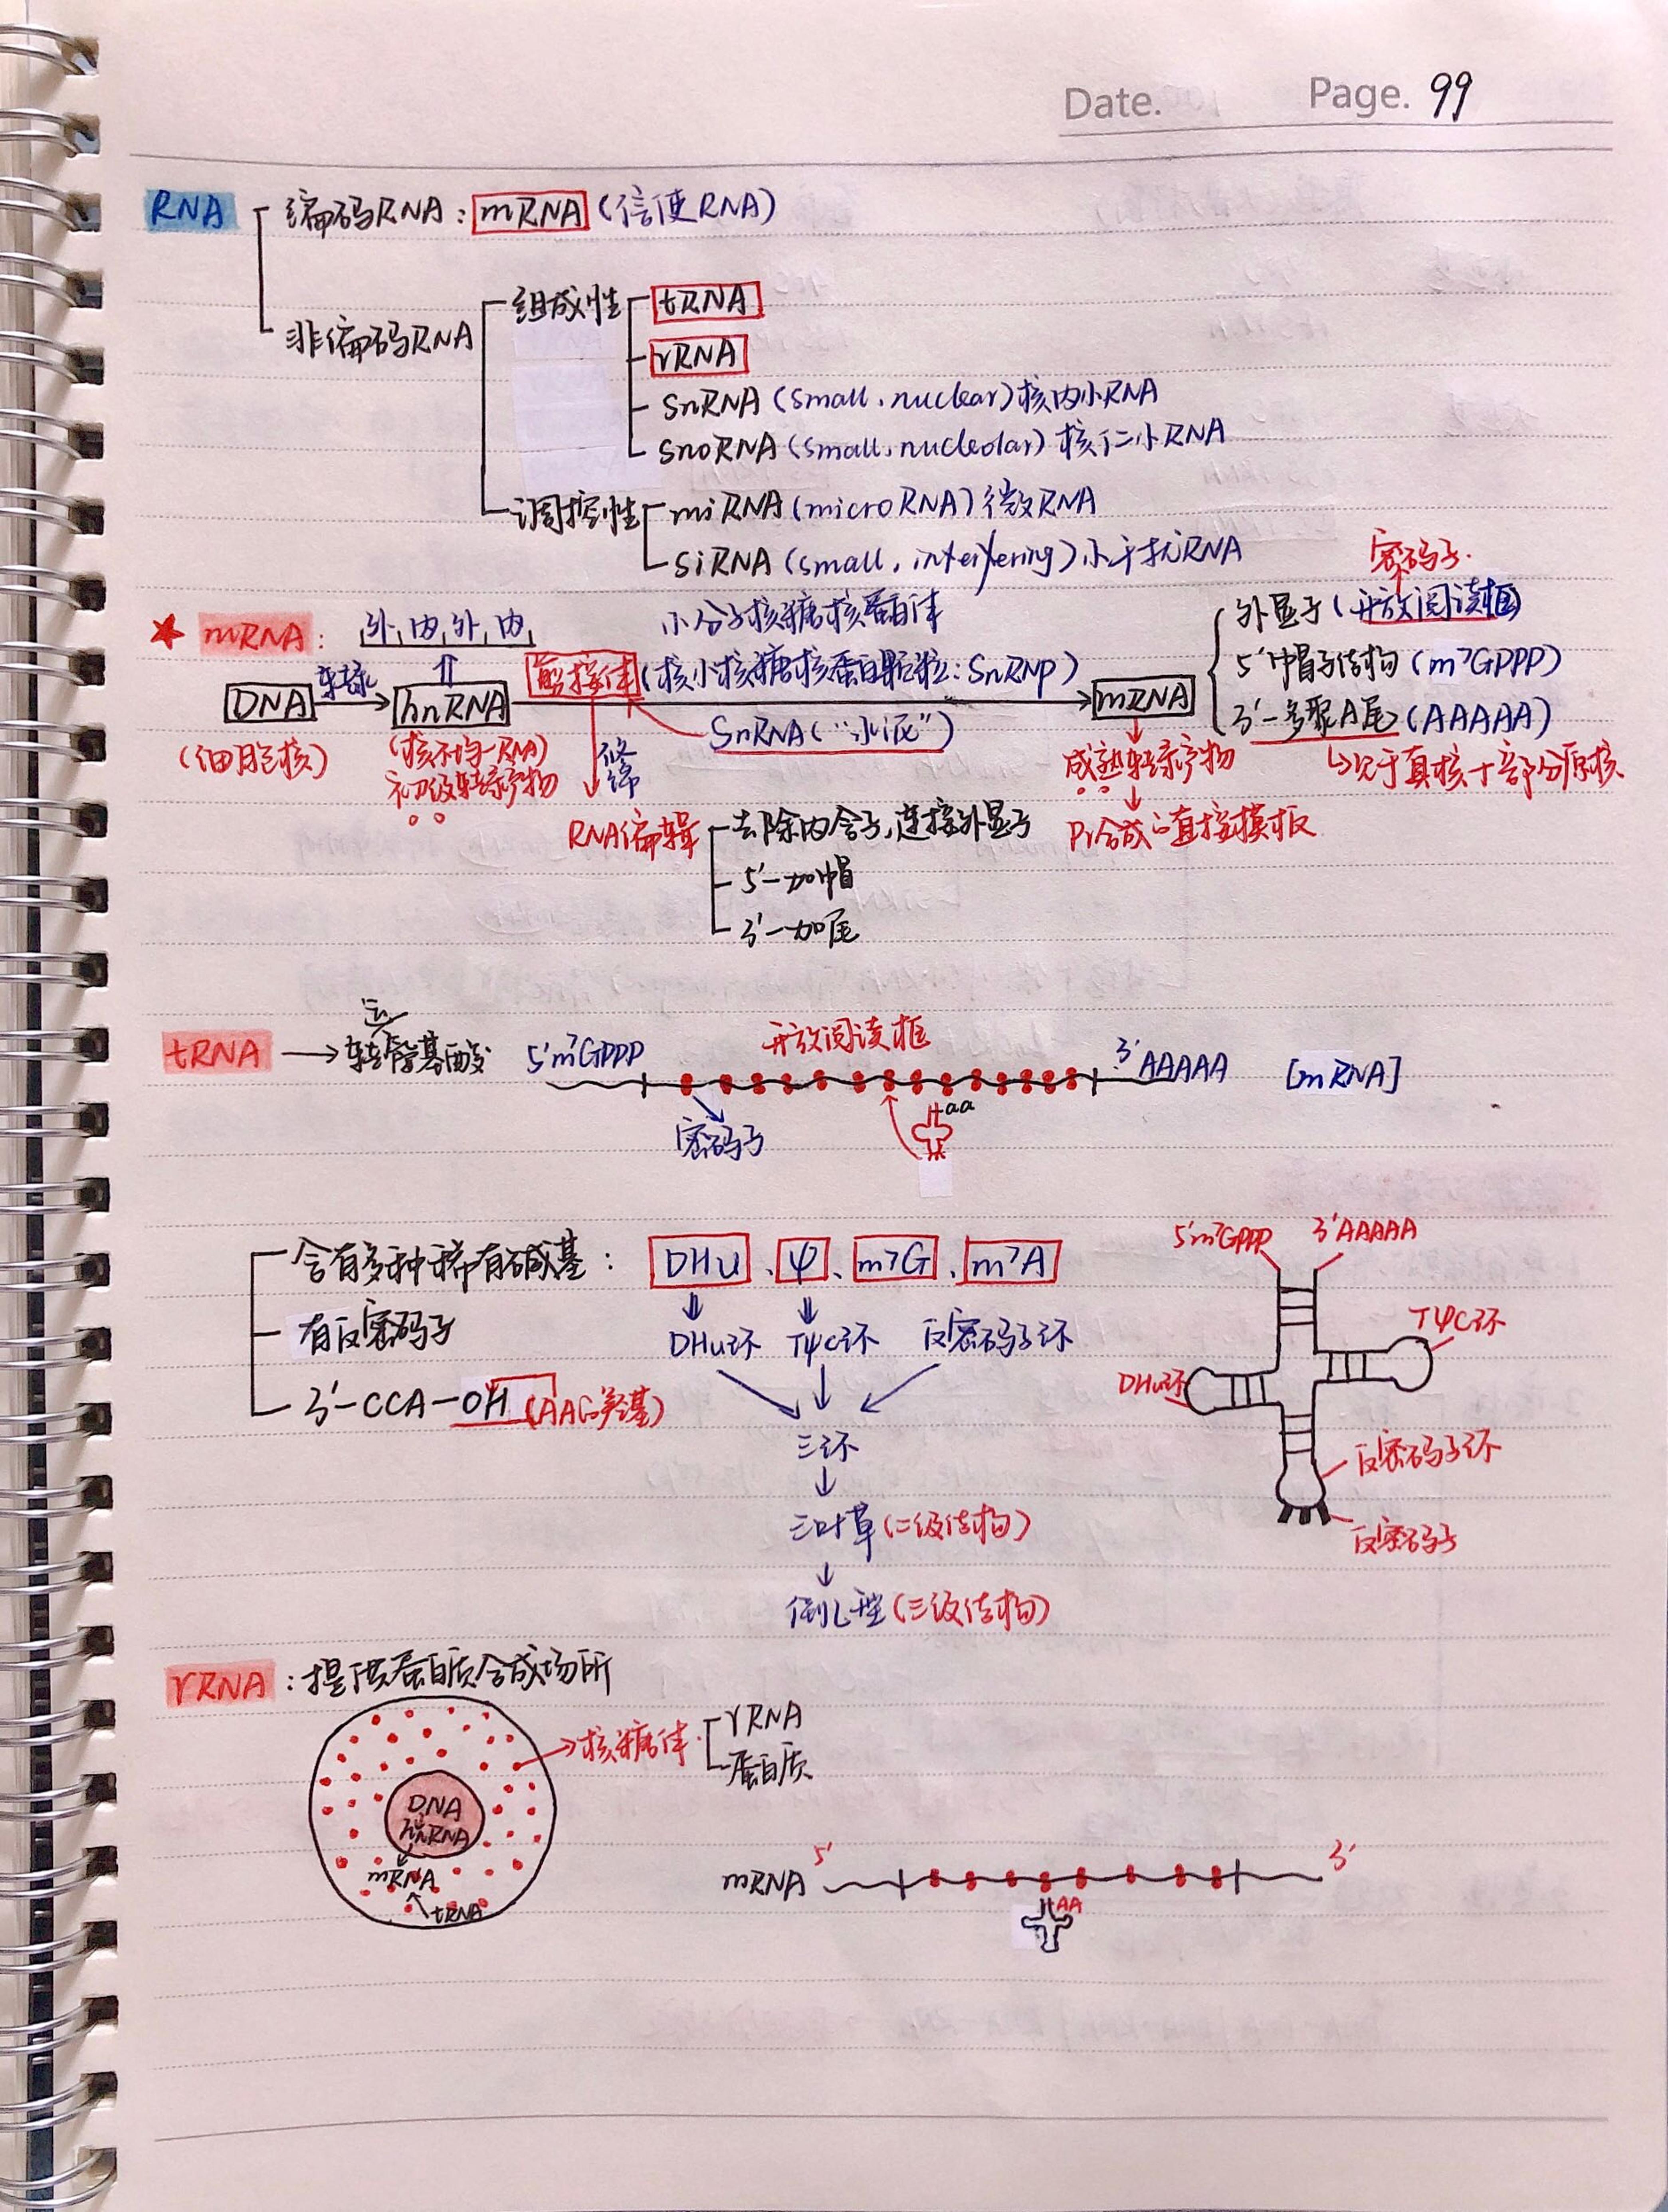 Date. Page. 99
RNA 编码RNA：mRNA（信使RNA）
非编码RNA
组成性
tRNA
rRNA
SnRNA（small，nuclear）核内小RNA
SnoRNA（small，nucleolar）核仁小RNA
调控性
miRNA（microRNA）微RNA
SiRNA（small，interfering）小干扰RNA
密码子
★ mRNA：
外，内，外，内
小分子核糖核蛋白体
DNA 转录 hnRNA 剪接体（核小核糖核蛋白颗粒：SnRNP） mRNA
外显子（开放阅读框）
5'帽子结构（m7GPPP）
3'-多聚A尾（AAAAA）
SnRNA（“水泥”）
（细胞核）
（核不均一RNA）
初级转录产物
修饰
成熟转录产物
↳仅于真核+部分原核
Pr合成的直接模板
RNA编辑
去除内含子，连接外显子
5'-加帽
3'-加尾
tRNA → 转运氨基酸
5'm7GPPP 开放阅读框 3'AAAAA [mRNA]
密码子
aa
含有多种稀有碱基：DHu、ψ、m7G、m7A
有反密码子
3'-CCA-OH（AA的羧基）
DHu环 Tψc环 反密码子环
三环
三叶草（二级结构）
倒L型（三级结构）
5'm7GPPP 3'AAAAA
TψC环
DHu环
反密码子环
反密码子
rRNA：提供蛋白质合成场所
核糖体
rRNA
蛋白质
DNA
hnRNA
mRNA
tRNA
mRNA 5' 3'
AA